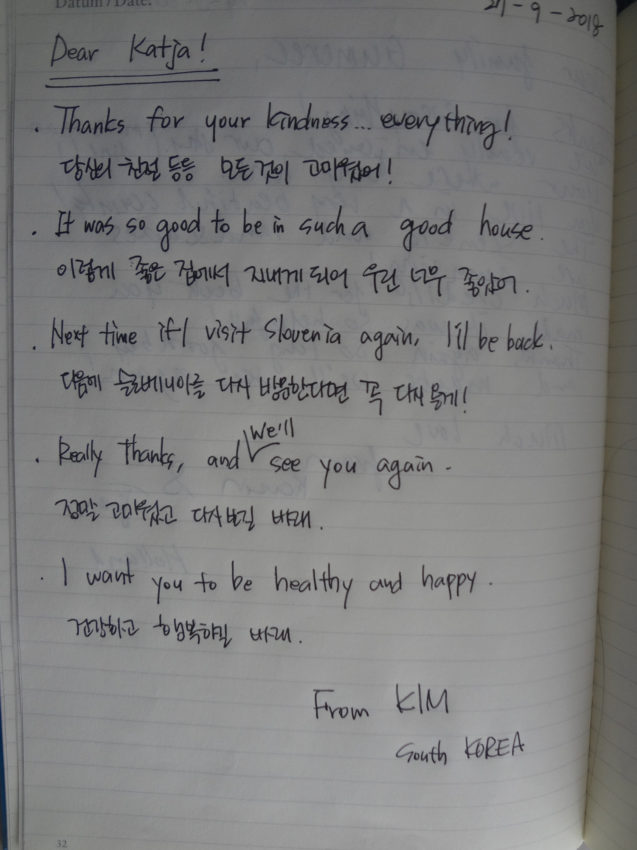 Datum / Date:
21-9-2018
Dear Katja!
. Thanks for your kindness... everything!
당신의 친절 등등 모든것이 고마웠어!
. It was so good to be in such a good house.
이렇게 좋은 집에서 지내게 되어 우린 너무 좋았어.
. Next time if I visit Slovenia again, I'll be back.
다음에 슬로베니아를 다시 방문한다면 꼭 다시 올게!
. Really thanks, and we'll see you again.
정말 고마웠고 다시보길 바래.
. I want you to be healthy and happy.
건강하고 행복하길 바래.
From KIM
South KOREA
32